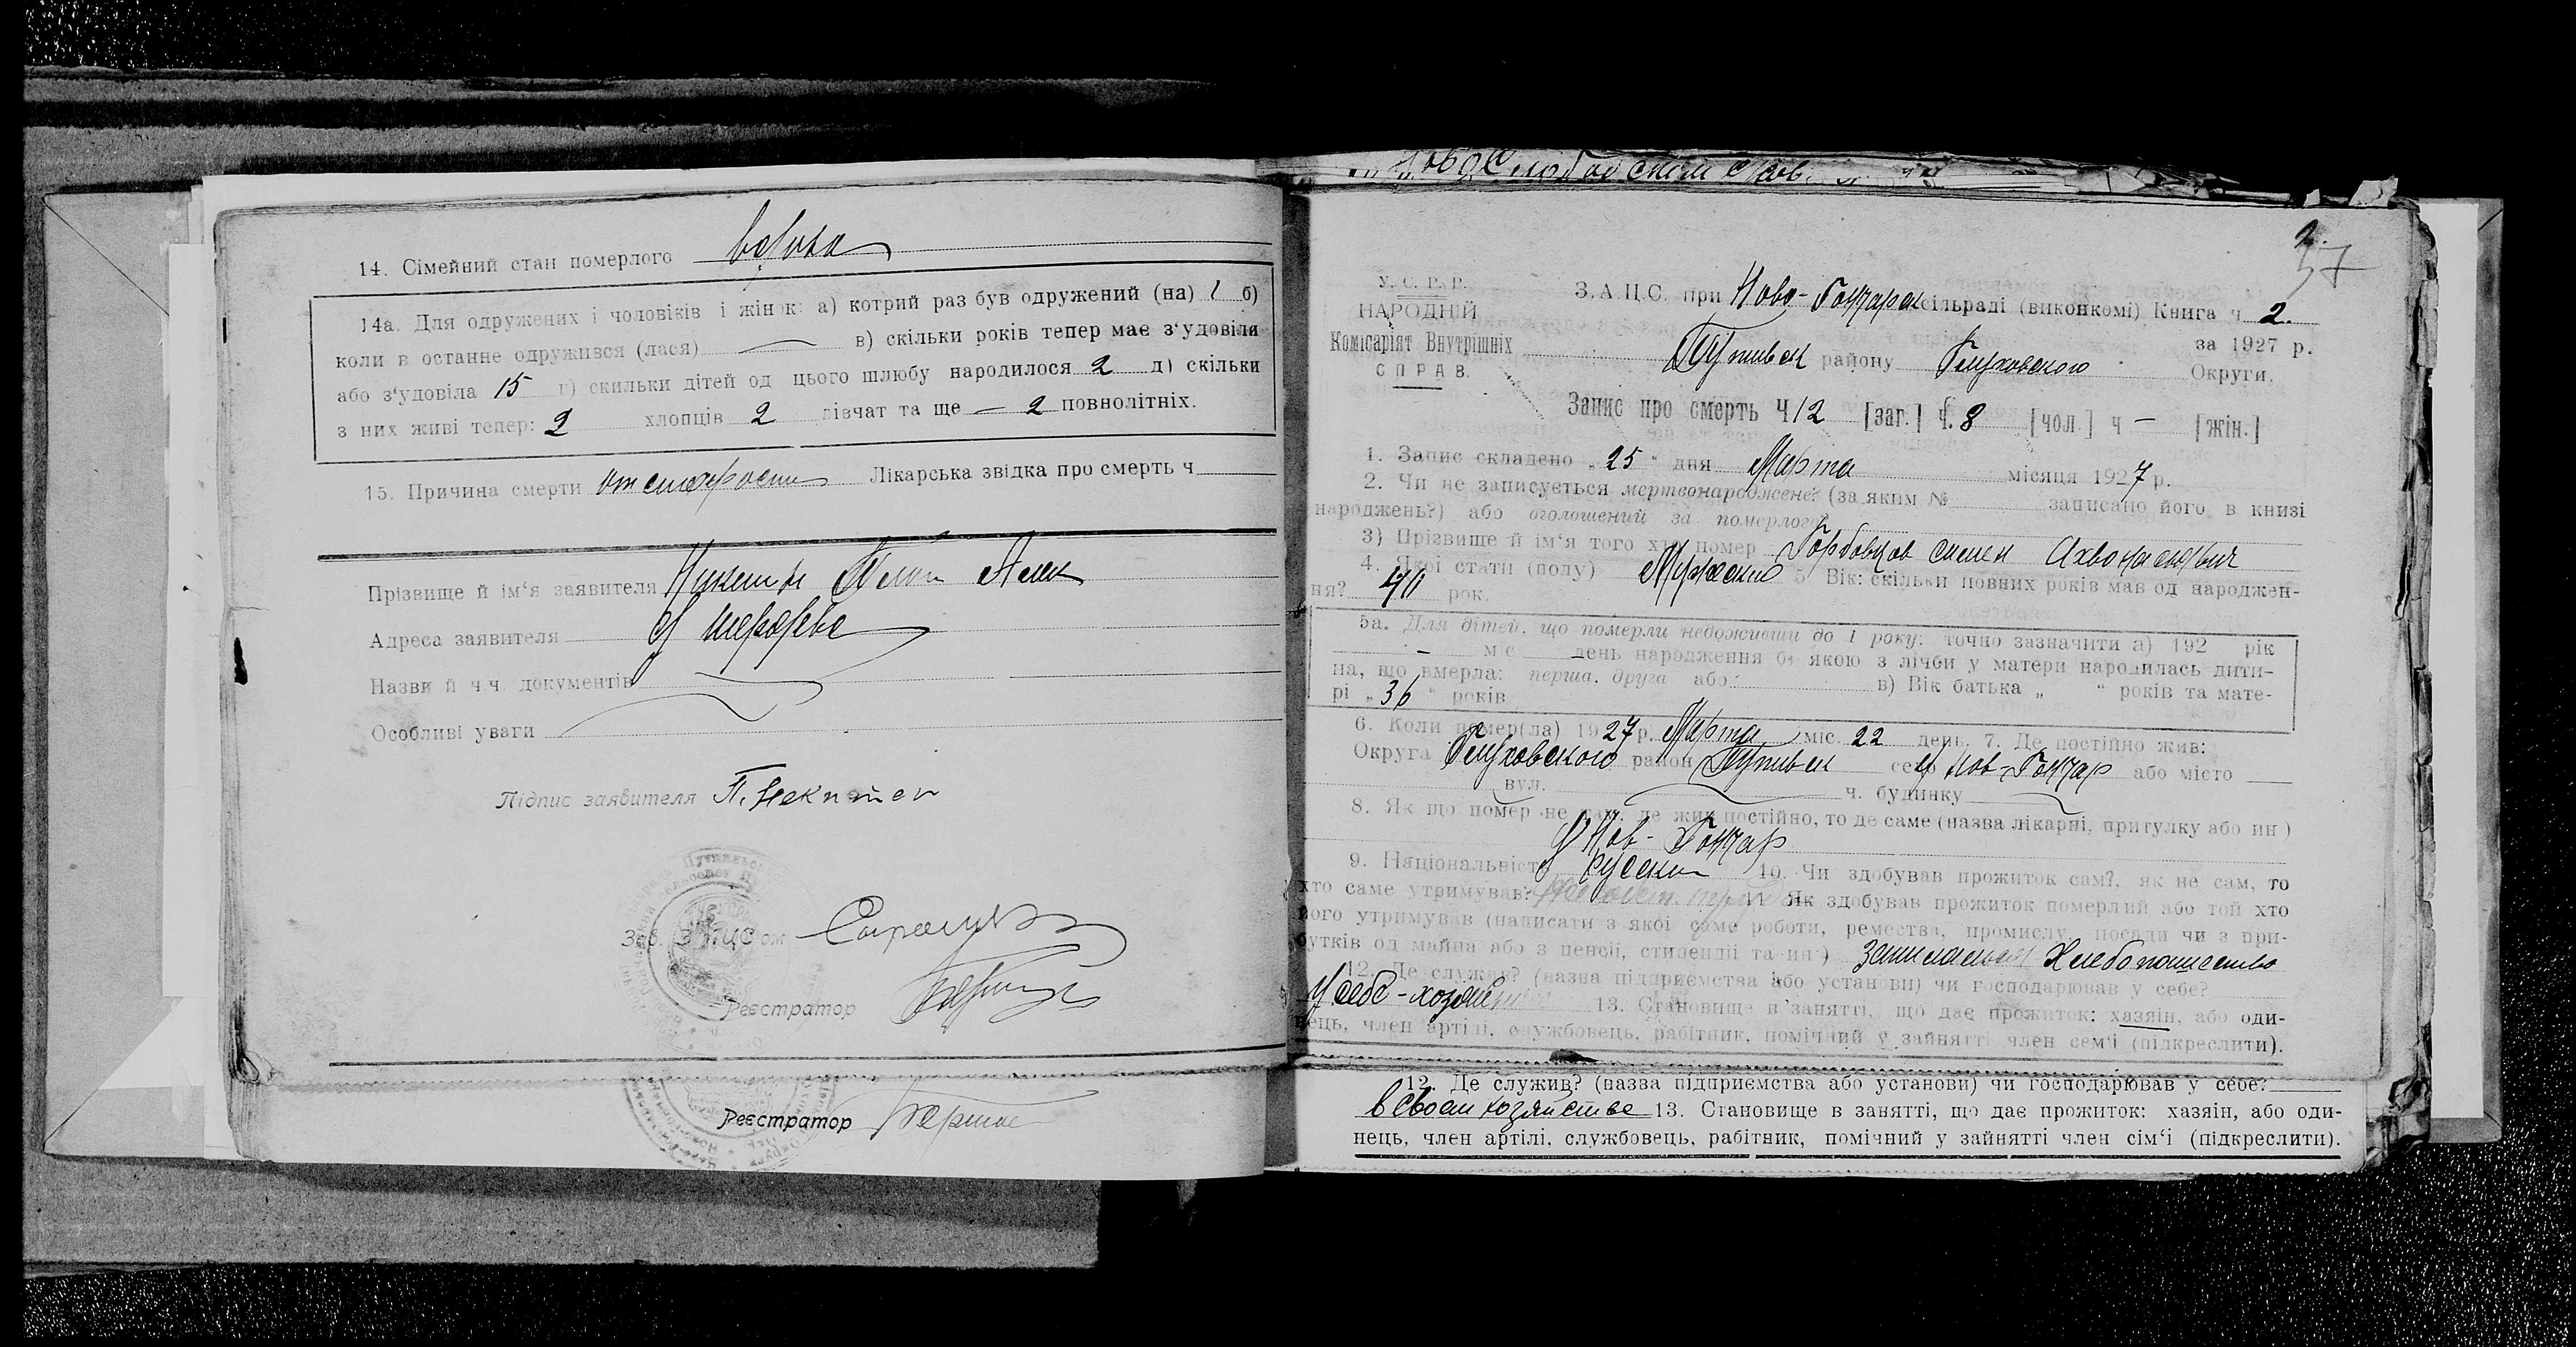 14. Сімейний стан померлого вдова
14а. Для одружених і чоловіків і жінок: а) котрий раз був одружений (на) 1 б)
коли в останнє одружився (лася) — в) скільки років тепер має з‘удовіли
або з‘удовіла 15 г) скильки дітей од цього шлюбу народилося 2 д) скільки
з них живі тепер: 2 хлопців 2 дівчат та ще — 2 повнолітніх.
15. Причина смерти от старости Лікарська звідка про смерть ч
Прізвище й ім‘я заявителя
Адреса заявителя
Назви й ч.ч. документів
Особливі уваги
Підпис заявителя
Зав. ЗАЦС‘ом
Реєстратор
Реєстратор
2.
37
У. С. Р. Р.
НАРОДНІЙ
Комісаріят Внутрішніх
СПРАВ.
З.А.Ц.С. при Ново-Гончарск сільраді (виконкомі) Книга ч 2.
за 1927 р.
Путивск району Глуховского Округи.
Запис про смерть Ч 12 [заг.] ч. 8 [чол.] ч — [жін.]
1. Запис складено „25“ дня Марта місяця 1927 р.
2. Чи не записується мертвонароджене? (за яким № записано його в книзі
народжень?) або оголошений за померлого?
3) Прізвище й ім‘я того хто помер Горбовцов
4. Якої стати (полу) Мужской 5. Вік: скільки повних років мав од народжен-
ня? рок.
5а. Для дітей, що померли недоживши до 1 року: точно зазначити а) 192 рік
— м-с день народження б) якою з лічби у матери народилась дити-
на, що вмерла: перша, друга або: в) Вік батька „ “ років та мате-
рі „36“ років
6. Коли помер(ла) 1927 р. Марта міс. 22 день. 7. Де постійно жив:
Округа Глуховского район Путивск село Нов-Гончар або місто
вул. ч. будинку
8. Як що помер не там, де жив постійно, то де саме (назва лікарні, притулку або ин)
Нов-Гончар
9. Національність русский 10. Чи здобував прожиток сам?, як не сам, то
хто саме утримував? Як здобував прожиток померлий або той хто
його утримував (написати з якої саме роботи, ремества, промислу, посади чи з при-
бутків од майна або з пенсії, стипендії та ин.) Хлебопашество
12. Де служив? (назва підприємства або установи) чи господарював у себе?
У себе - 13. Становище в занятті, що дає прожиток: хазяїн, або оди-
нець, член артілі, службовець, рабітник, помічний у зайнятті член сем‘ї (підкреслити).
12. Де служив? (назва підприємства або установи) чи господарював у себе?
в своем хозяйстве 13. Становище в занятті, що дає прожиток: хазяін, або оди-
нець, член артілі, службовець, рабітник, помічний у зайнятті член сім‘ї (підкреслити).